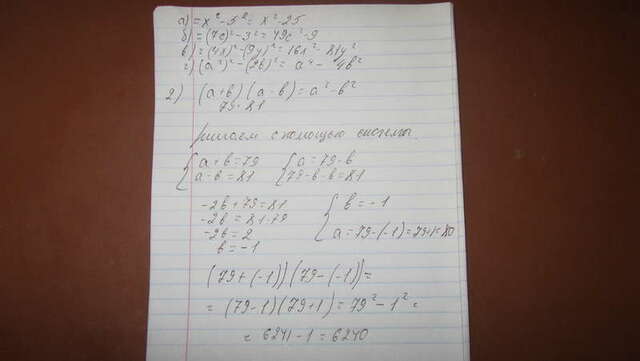 а) = x² - 5² = x² - 25
б) = (7c)² - 3² = 49c² - 9
в) = (4x)² - (9y)² = 16x² - 81y²
г) (a²)² - (2b)² = a⁴ - 4b²
2) (a+b)(a-b) = a² - b²
79 · 81
решаем с помощью системы.
{ a+b=79 { a=79-b
a-b=81 79-b-b=81
-2b+79=81 { b=-1
-2b=81-79
-2b=2 a=79-(-1)=79+1=80
b=-1
(79+(-1))(79-(-1))=
= (79-1)(79+1) = 79² - 1² =
= 6241 - 1 = 6240